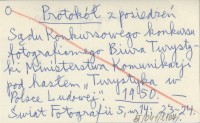 Protokół z posiedzeń
Sądu Konkursowego konkursu
fotograficznego Biura Turysty-
ki Ministerstwa Komunikacji
pod hasłem „Turystyka w
Polsce Ludowej." 1950. —
Świat Fotografii 5, nr 14: 23-24.